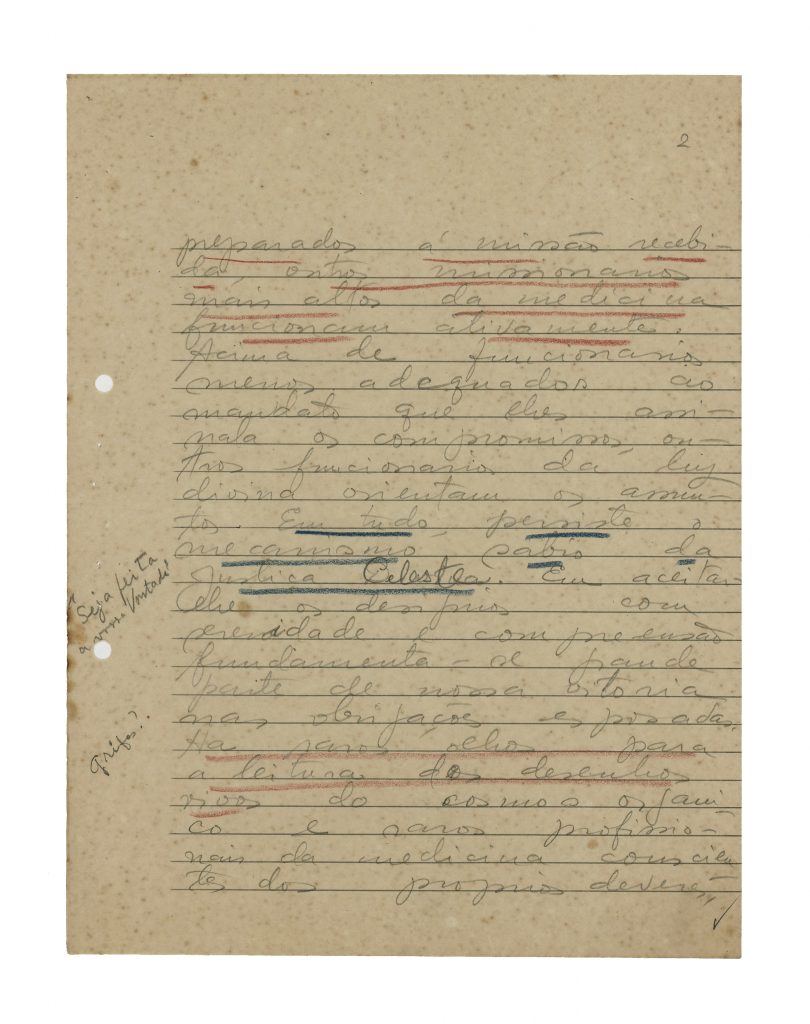 2
preparados á missão recebi-
da, outros missionarios
mais altos da medicina
funcionam ativamente.
Acima de funcionarios
menos adequados ao
mandato que lhes assi-
nala os compromissos, ou-
tros funcionarios da luz
divina orientam os assun-
tos. Em tudo, persiste o
mecanismo sabio da
Justiça Celeste. Em aceitar-
lhe os designios com
serenidade e compreensão
fundamenta-se grande
parte de nossa vitoria
nas obrigações esposadas.
Ha raros olhos para
a leitura dos desenhos
vivos do cosmos organi-
co e raros profissio-
nais da medicina conscien-
tes dos proprios deveres,
Seja feita
a vossa Vontade
Grifos?